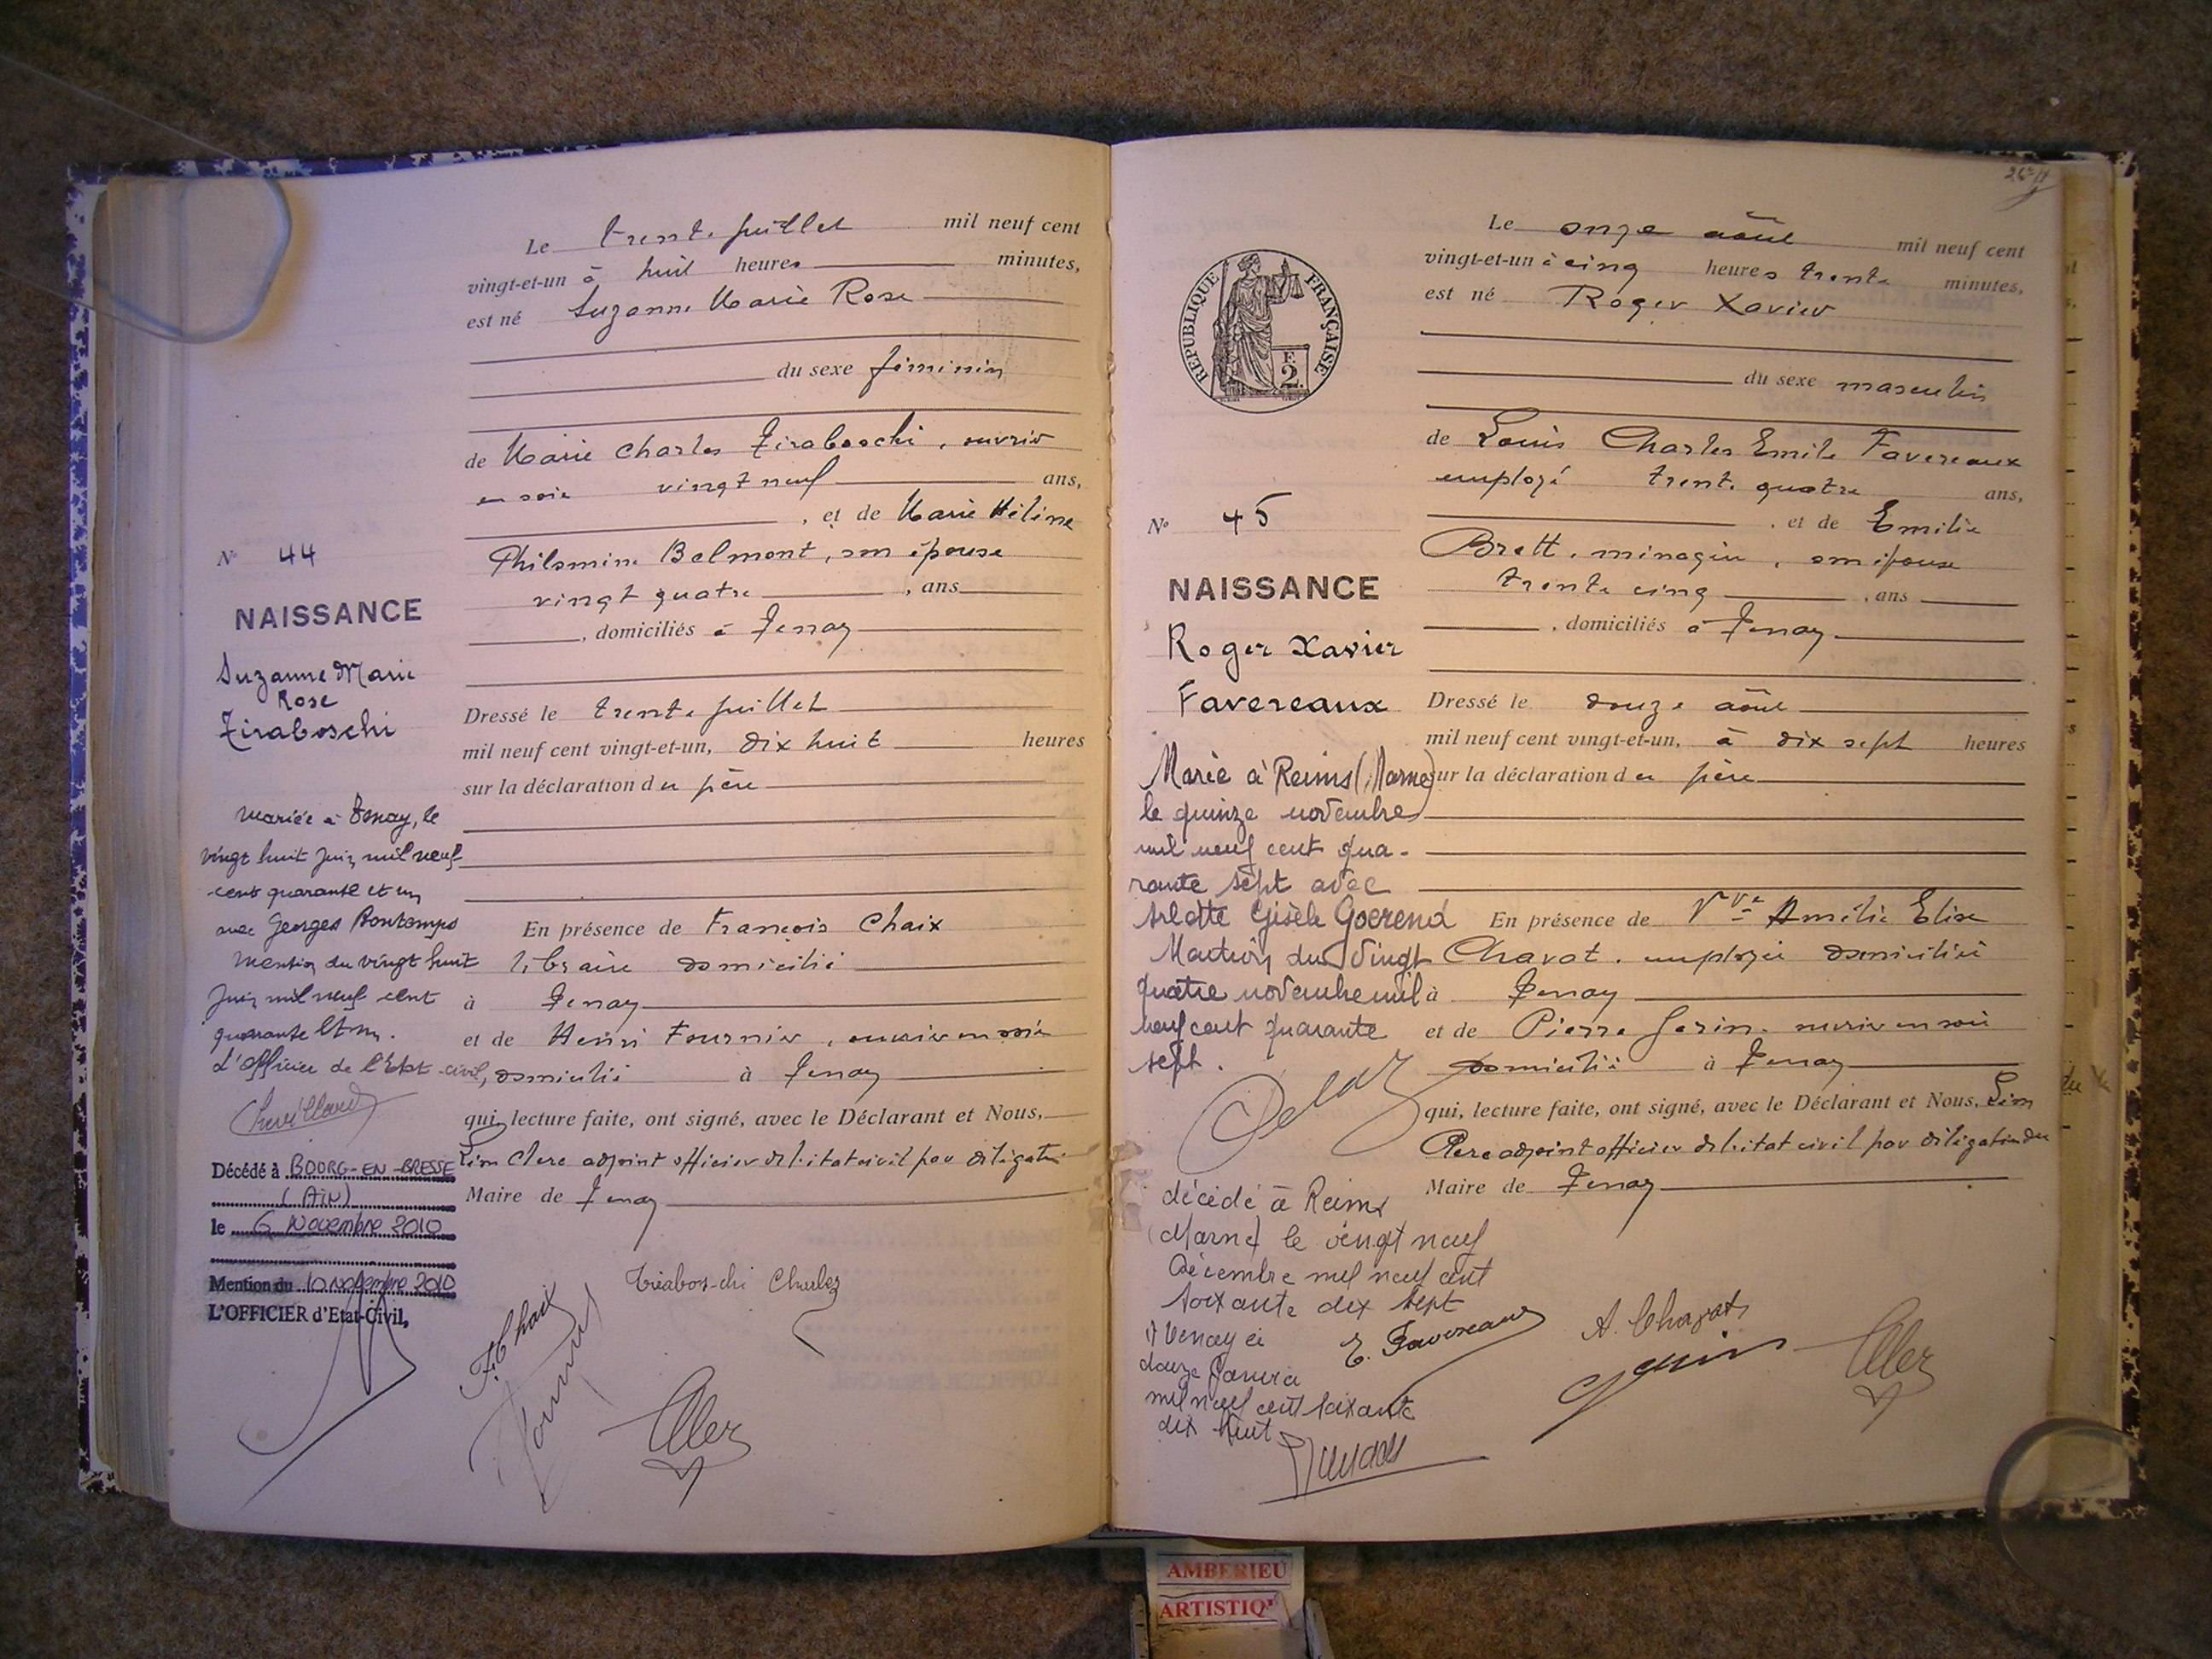 Le trente juillet mil neuf cent
vingt-et-un à huit heures minutes,
est né Suzanne Marie Rose
du sexe féminin
de Marie Charles Tiraboschi, ouvrier
en soie vingt neuf ans,
, et de Marie Hélène
Philomène Belmont, son épouse
vingt quatre , ans
, domiciliés à Tenay
Dressé le trente juillet
mil neuf cent vingt-et-un, dix huit heures
sur la déclaration du père
En présence de François Chaix
libraire domicilié
à Tenay
et de Henri Fournier, ouvrier en soie
domicilié à Tenay
qui, lecture faite, ont signé, avec le Déclarant et Nous,
Léon Clerc adjoint officier de l'état civil par délégation
Maire de Tenay
Tiraboschi Charles
F. Chaix
Fournier
Clerc
N° 44
NAISSANCE
Suzanne Marie
Rose
Tiraboschi
Mariée à Tenay, le
vingt huit juin mil neuf
cent quarante et un
avec Georges Bontemps
Mention du vingt huit
Juin mil neuf cent
quarante et un.
L'Officier de l'Etat-civil,
Décédé à BOURG-EN-BRESSE
(AIN)
le 6 Novembre 2010
Mention du 10 novembre 2010
L'OFFICIER d'Etat-Civil,
REPUBLIQUE FRANÇAISE
F.
2.
Le onze août mil neuf cent
vingt-et-un à cinq heures trente minutes,
est né Roger Xavier
du sexe masculin
de Louis Charles Emile Favereaux
employé trente quatre ans,
, et de Emilie
Brett, ménagère, son épouse
trente cinq , ans
, domiciliés à Tenay
Dressé le douze août
mil neuf cent vingt-et-un, à dix sept heures
sur la déclaration du père
En présence de Vve Amélie Elise
Chavat, employée domiciliée
à Tenay
et de Pierre Gerin, ouvrier en soie
domicilié à Tenay
qui, lecture faite, ont signé, avec le Déclarant et Nous, Léon
Clerc adjoint officier de l'état civil par délégation du
Maire de Tenay
E. Favereaux
A. Chavat
Gerin
Clerc
N° 45
NAISSANCE
Roger Xavier
Favereaux
Marié à Reims (Marne)
le quinze novembre
mil neuf cent qua-
rante sept avec
Arlette Gisèle Goerend
Mention du Vingt
quatre novembre mil
neuf cent quarante
sept.
décédé à Reims
(Marne) le vingt neuf
Décembre mil neuf cent
soixante dix sept
A Tenay ce
douze Janvier
mil neuf cent soixante
dix huit
AMBERIEU
ARTISTIQ'